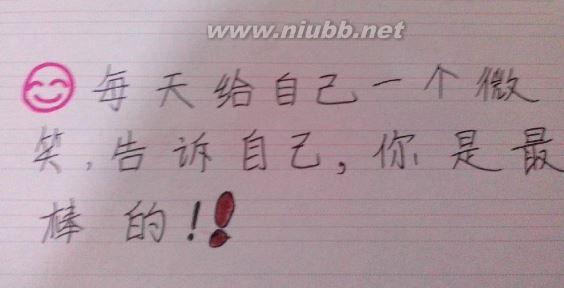 www.niubb.net
每天给自己一个微
笑,告诉自己,你是最
棒的!!